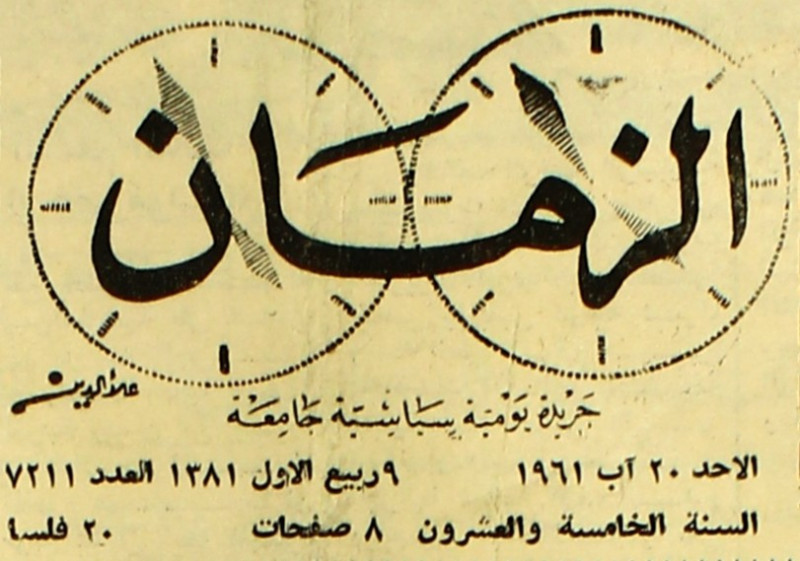 الزمان
علاء الدين
جريدة يومية سياسية جامعة
الاحد ٢٠ آب ١٩٦١ ٩ ربيع الاول ١٣٨١ العدد ٧٢١١
السنة الخامسة والعشرون ٨ صفحات ٢٠ فلسا